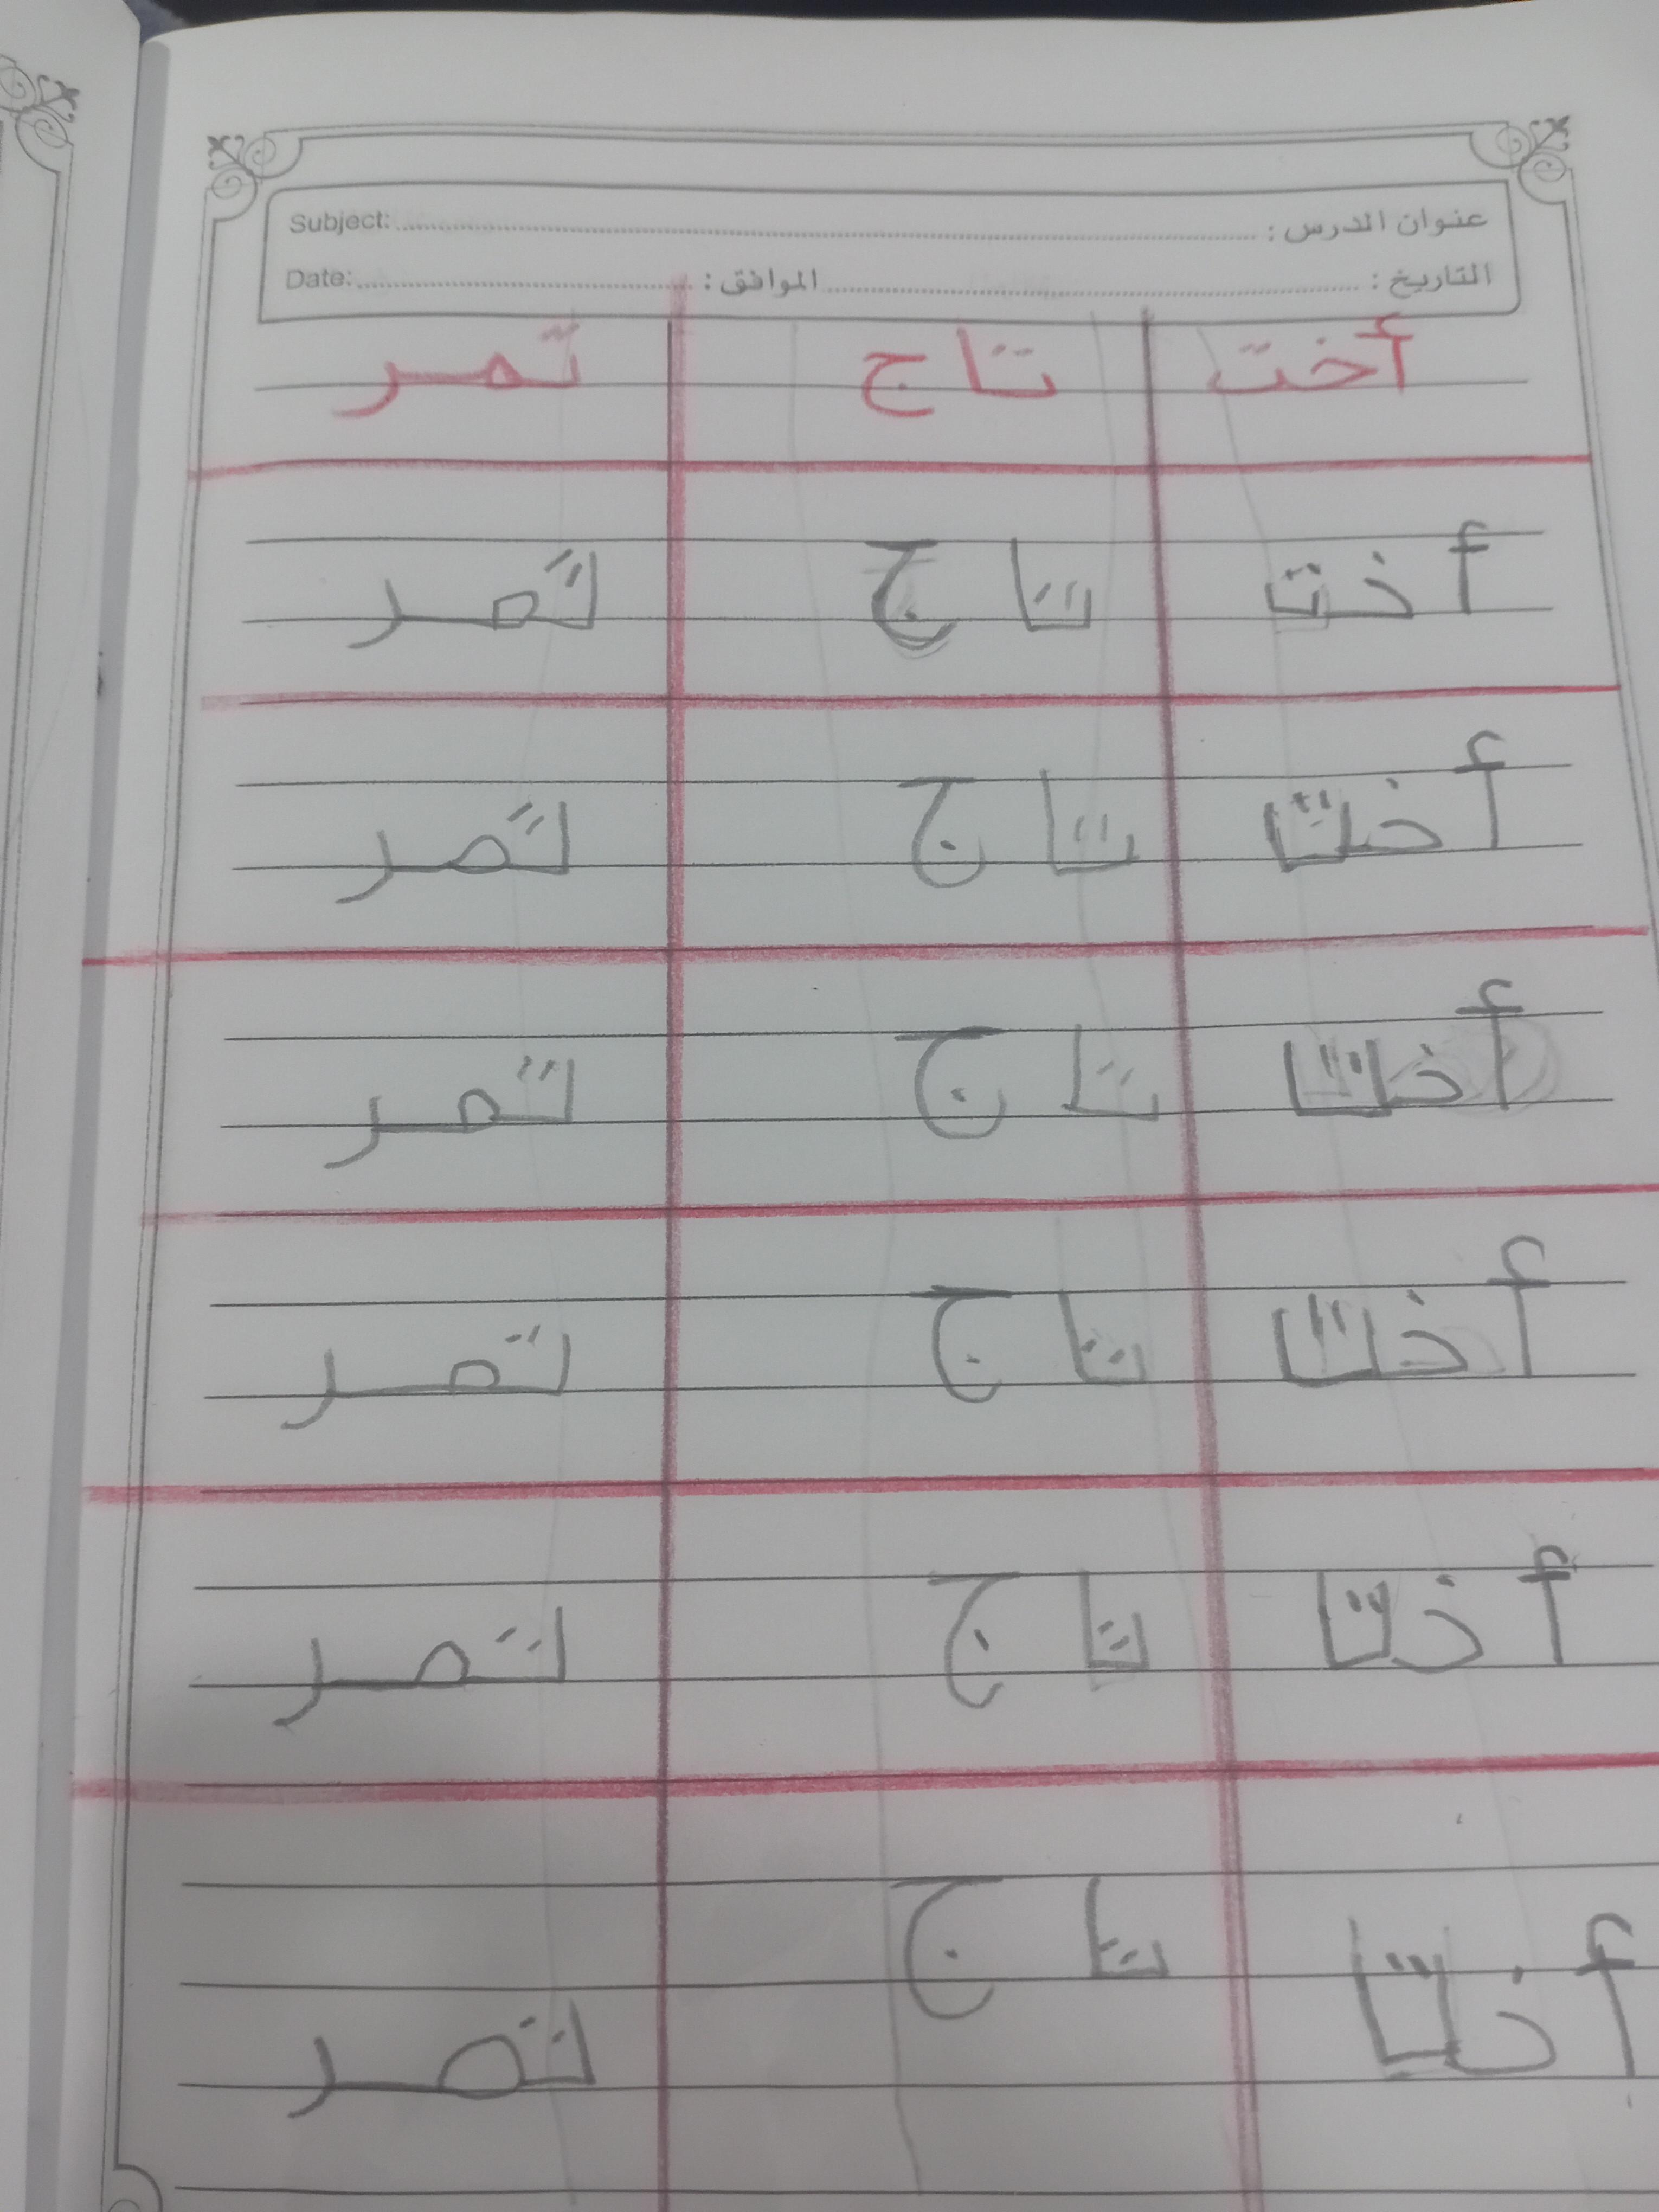 عنوان الدرس : Subject:
التاريخ : الموافق : Date:
أخت تاج تمر
أخت تاج تمر
أخت تاج تمر
أخت تاج تمر
أخت تاج تمر
أخت تاج تمر
أخت تاج تمر